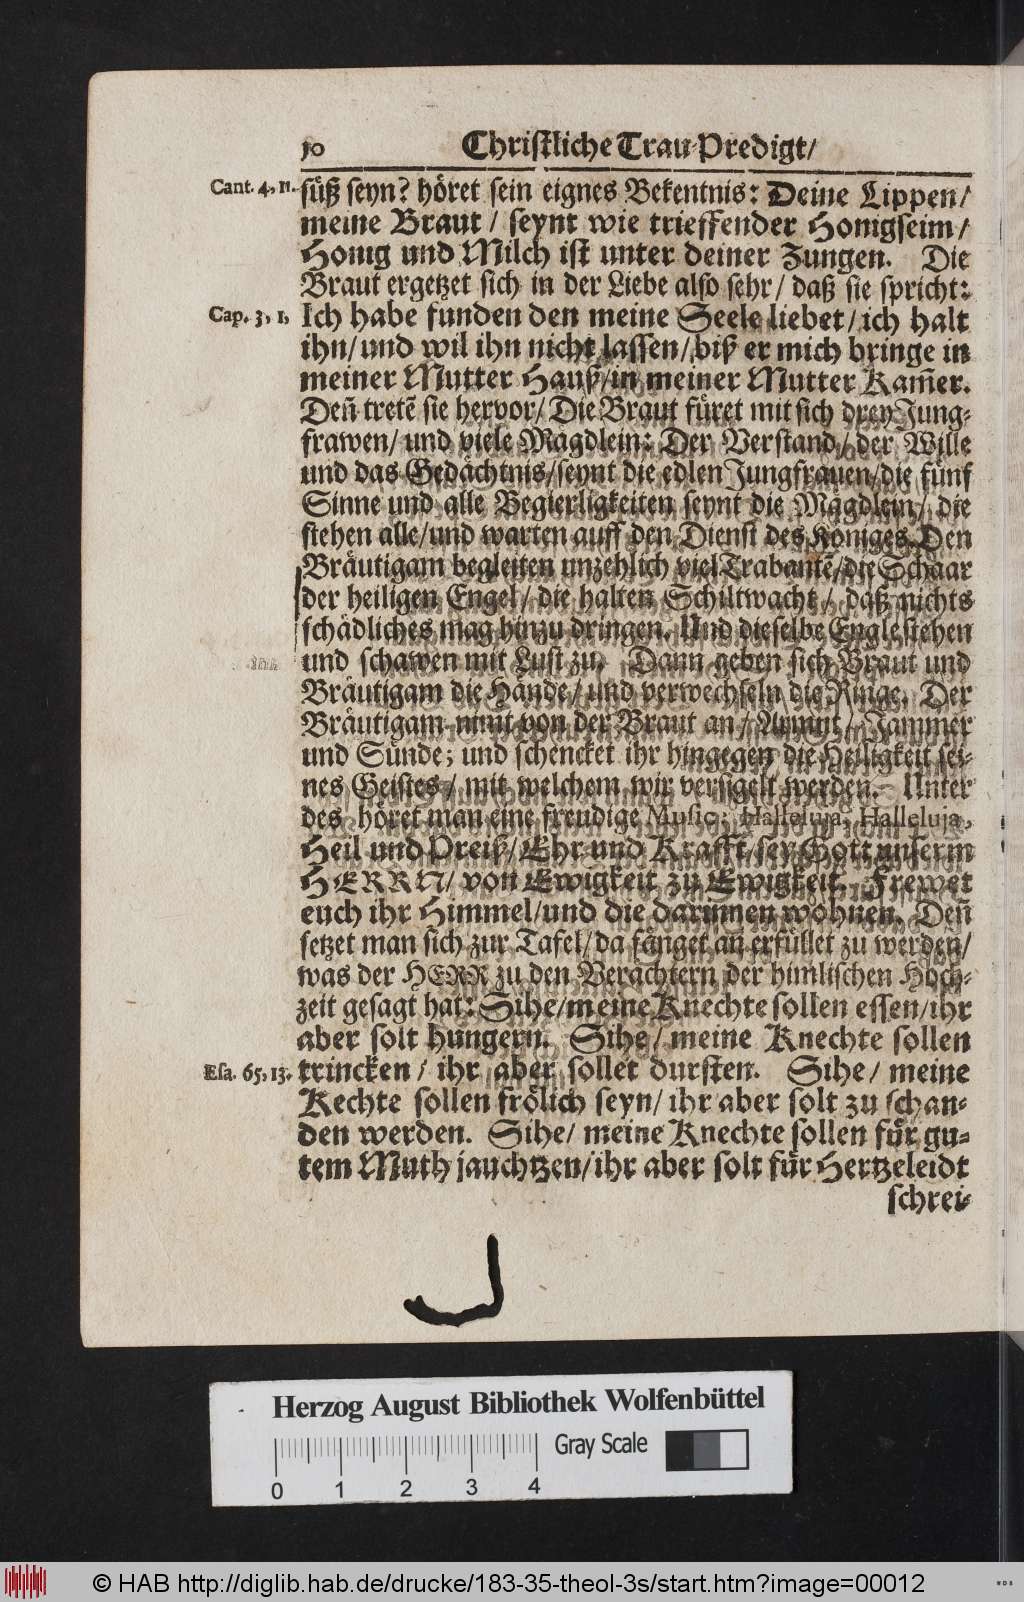 10 Christliche Trau-Predigt/
Cant. 4, 11. süß seyn? höret sein eignes Bekentnis: Deine Lippen/
meine Braut / seynt wie trieffender Honigseim /
Honig und Milch ist unter deiner Zungen. Die
Braut ergetzet sich in der Liebe also sehr / daß sie spricht:
Cap. 3, 1, Ich habe funden den meine Seele liebet / ich halt
ihn / und wil ihn nicht lassen / biß er mich bringe in
meiner Mutter Hauß / in meiner Mutter Kam̃er.
Deñ tretẽ sie hervor / Die Braut füret mit sich drey Jung-
frawen / und viele Mägdlein: Der Verstand / der Wille
und das Gedächtnis / seynt die edlen Jungfrauen / die fünf
Sinne und alle Begierligkeiten seynt die Mägdlein / die
stehen alle / und warten auff den Dienst des Königes. Den
Bräutigam begleiten unzehlich viel Trabantẽ / die Schaar
der heiligen Engel / die halten Schiltwacht / daß nichts
schädliches mag hinzu dringen. Und dieselbe Engle stehen
und schawen mit Lust zu. Dann geben sich Braut und
Bräutigam die Hände / und verwechseln die Ringe. Der
Bräutigam nimt von der Braut an / Armut / Jammer
und Sünde; und schencket ihr hingegen die Heiligkeit sei-
nes Geistes / mit welchem wir versigelt werden. Unter
des höret man eine freudige Music: Halleluja, Halleluja,
Heil und Preiß / Ehr und Krafft sey Gott unserm
HERRN / von Ewigkeit zu Ewigkeit. Frewet
euch ihr Himmel / und die darinnen wohnen. Deñ
setzet man sich zur Tafel / da fänget an erfüllet zu werden /
was der HERR zu den Verächtern der himlischen Hoch-
zeit gesagt hat: Sihe / meine Knechte sollen essen / ihr
aber solt hungern. Sihe / meine Knechte sollen
Esa. 65, 13. trincken / ihr aber sollet dursten. Sihe / meine
Kechte sollen frölich seyn / ihr aber solt zu schan-
den werden. Sihe / meine Knechte sollen für gu-
tem Muth jauchtzen / ihr aber solt für Hertzeleidt
schrei-
Herzog August Bibliothek Wolfenbüttel
Gray Scale
0 1 2 3 4
© HAB http://diglib.hab.de/drucke/183-35-theol-3s/start.htm?image=00012